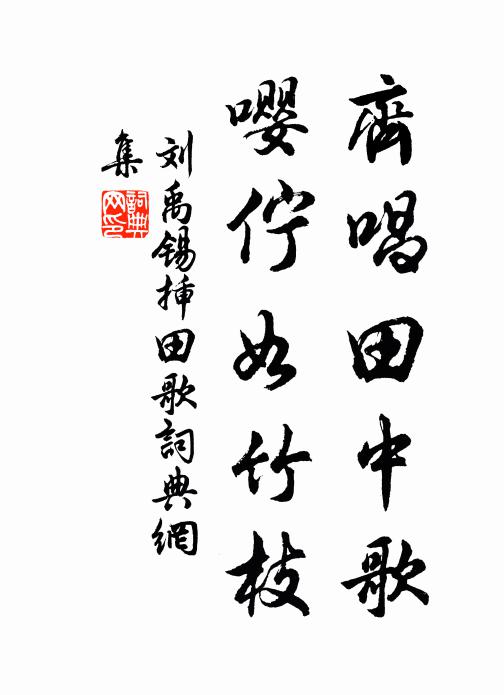 齊唱田中歌
嚶佇如竹枝
刘禹锡挿田歌詞典網
集
詞典
网印